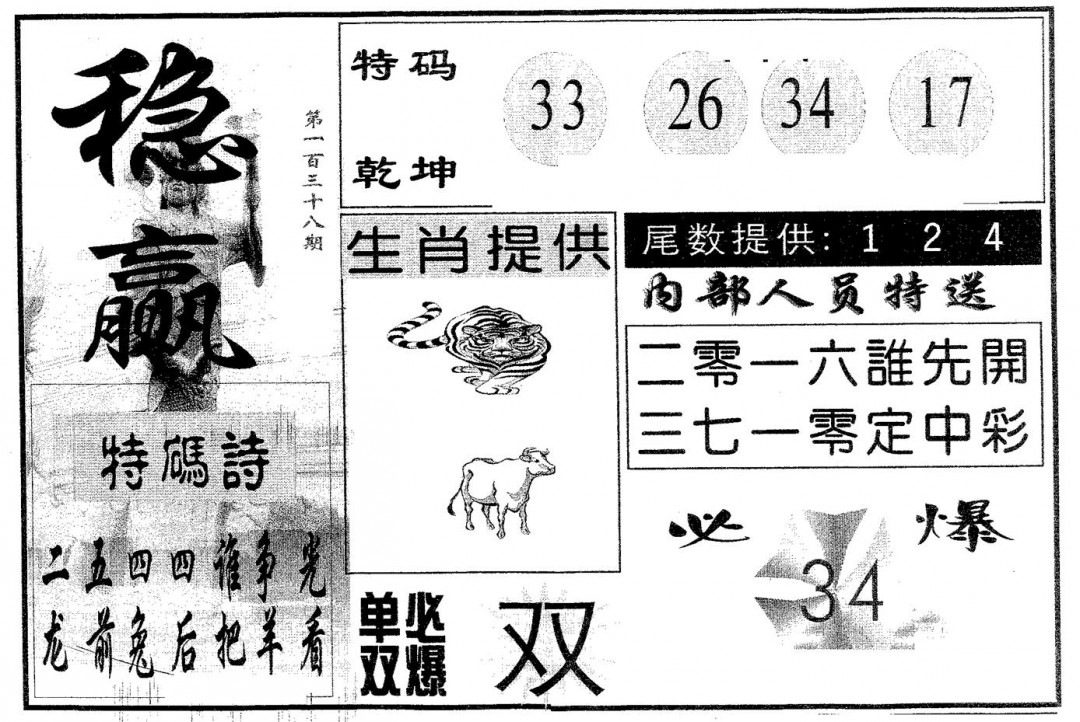 稳赢
第一百三十八期
特码诗
二五四四谁争光
龙前兔后把羊看
特码
乾坤
33 26 34 17
生肖提供
尾数提供: 1 2 4
内部人员特送
二零一六誰先開
三七一零定中彩
必爆
34
单双
必爆
双